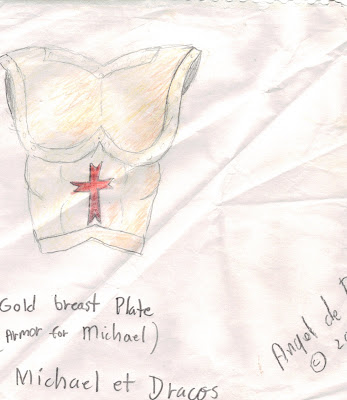 Gold breast Plate
(Armor for Michael)
Michael et Dracos
Angel de
©